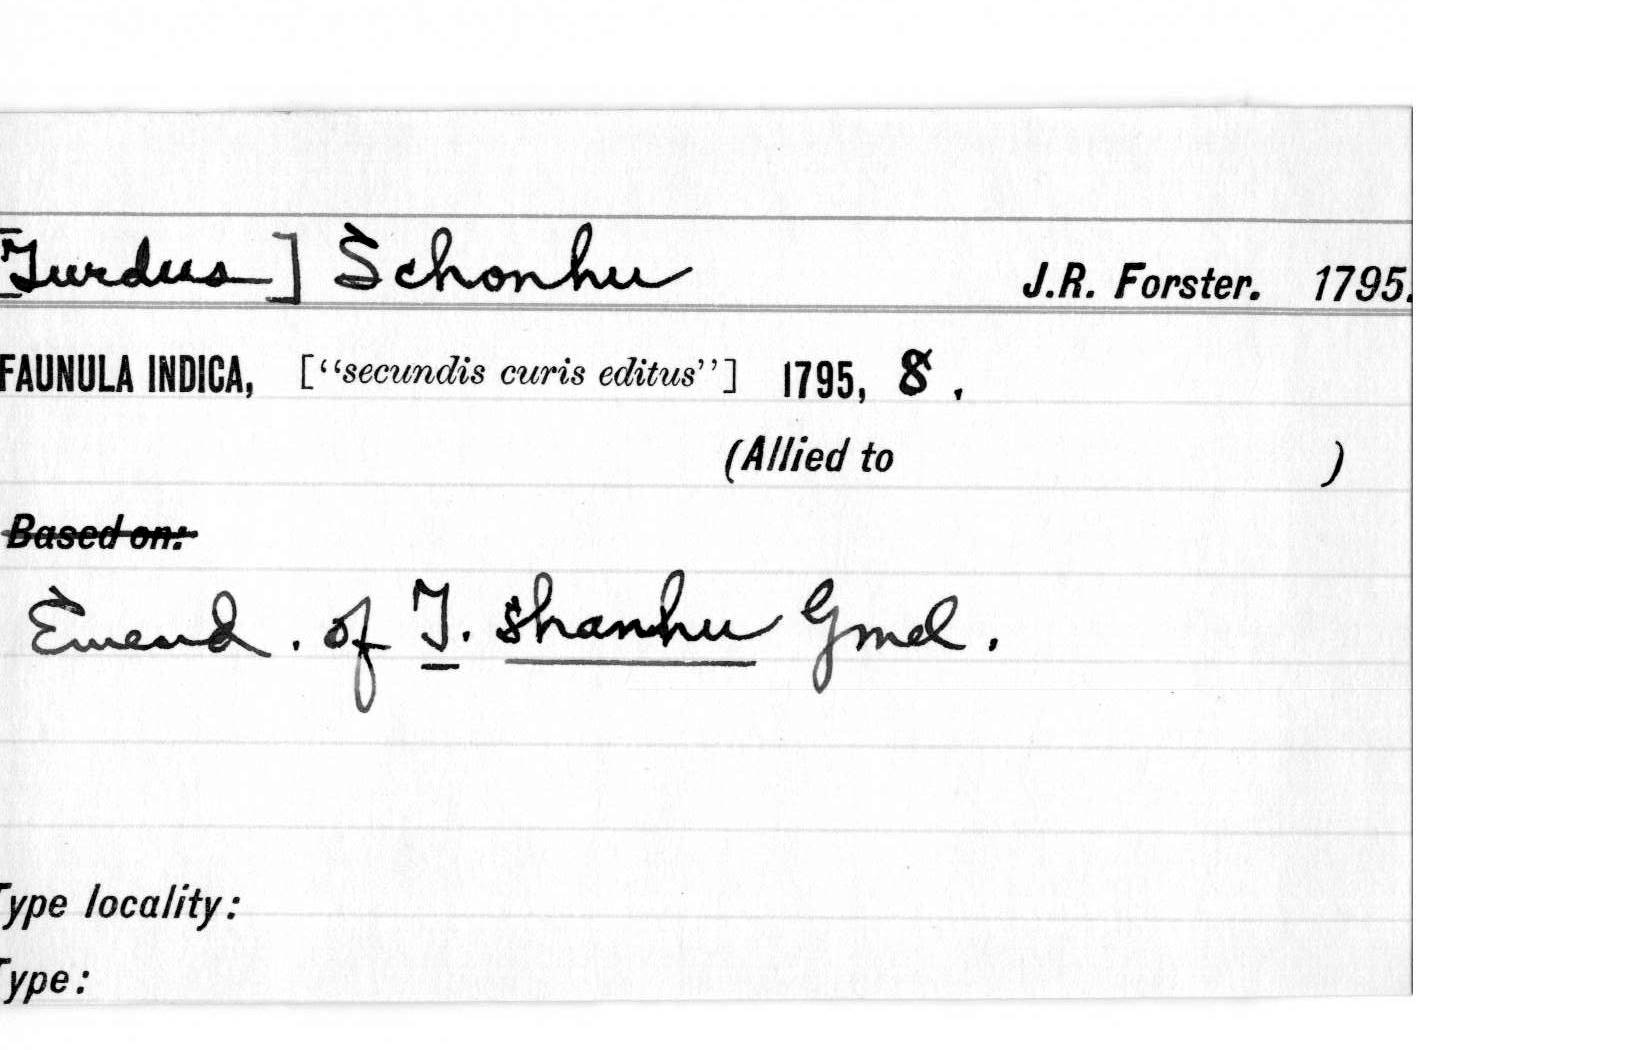 [Turdus] Schonhu J.R. Forster. 1795.
FAUNULA INDICA, [“secundis curis editus”] 1795, 8.
(Allied to )
Based on:
Emend. of T. shanhu Gmel.
Type locality:
Type: